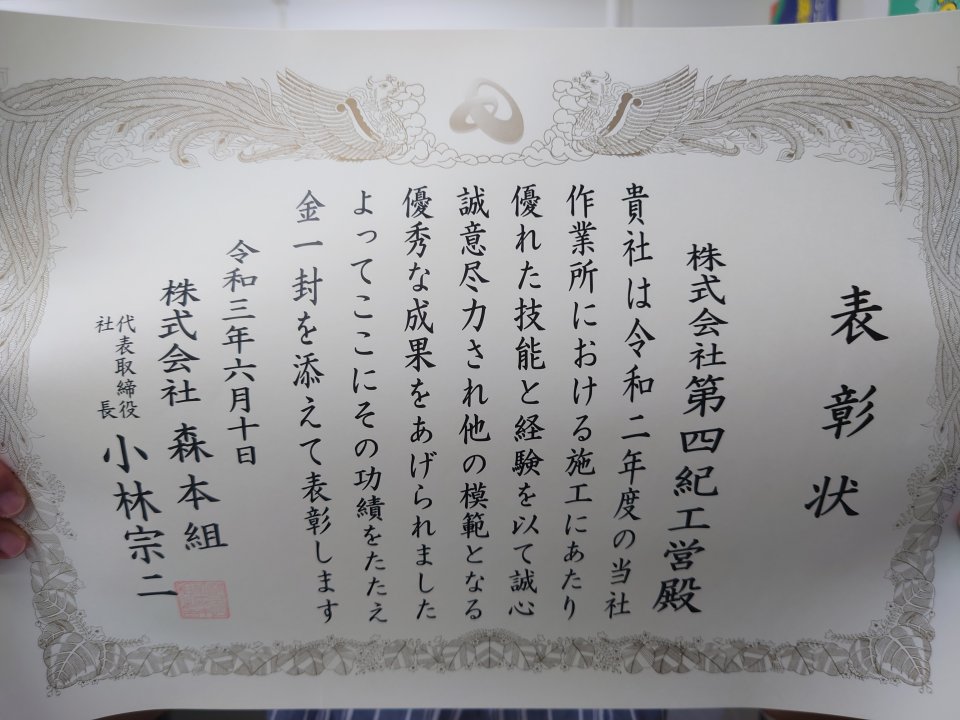 表彰状
株式会社第四紀工営殿
貴社は令和二年度の当社
作業所における施工にあたり
優れた技能と経験を以て誠心
誠意尽力され他の模範となる
優秀な成果をあげられました
よってここにその功績をたたえ
金一封を添えて表彰します
令和三年六月十日
株式会社 森本組
代表取締役
社長 小林宗二